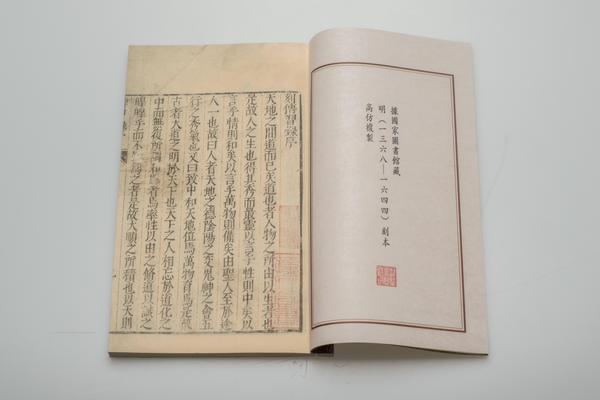 據國家圖書館藏
明（一三六八—一六四四）刻本
高仿複製
刻傳習錄序
天地之間道而已矣道也者人物之所由以生者也
是故人之生也得其秀而最靈以言乎性則中矣以
言乎情則和矣以言乎萬物則備矣由聖人至於途
人一也故曰人者天地之德陰陽之交鬼神之會五
行之秀氣也又曰致中和天地位焉萬物育焉是故
古者大道之明於天下也天下之人相忘於道化之
中而無復所謂者焉率性以由之修道以誠之
皥皥乎而不知之者是故大順之所積也以天則